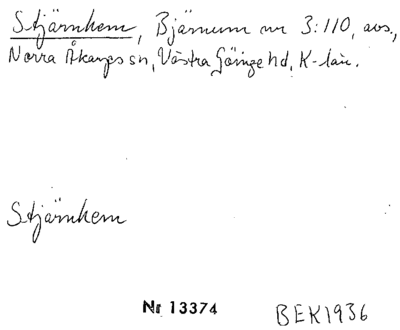 Stjärnhem, Bjärnum nr 3:110, avs.,
Norra Åkarps sn, Västra Göinge hd, K-län.
Stjärnhem
Nr 13374
BEK1936